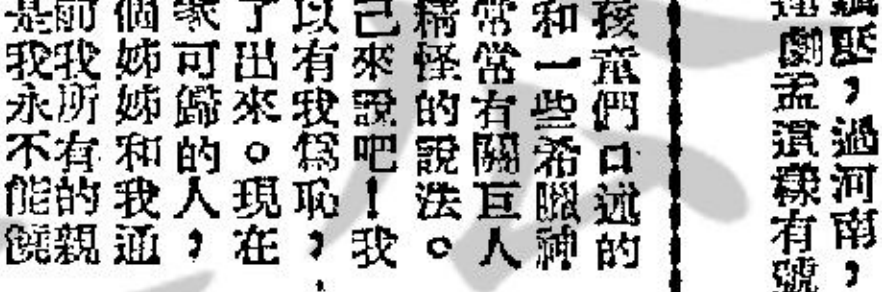 ，過河南，
劇孟樣有號
孩童們口述的
和一些希臘神
常常有關巨人
精怪的說法。
己來說吧！我
以有我爲恥，
了出來。現在
家可歸的人，
個姊姊和我通
前我所有的親
是我永不能饒